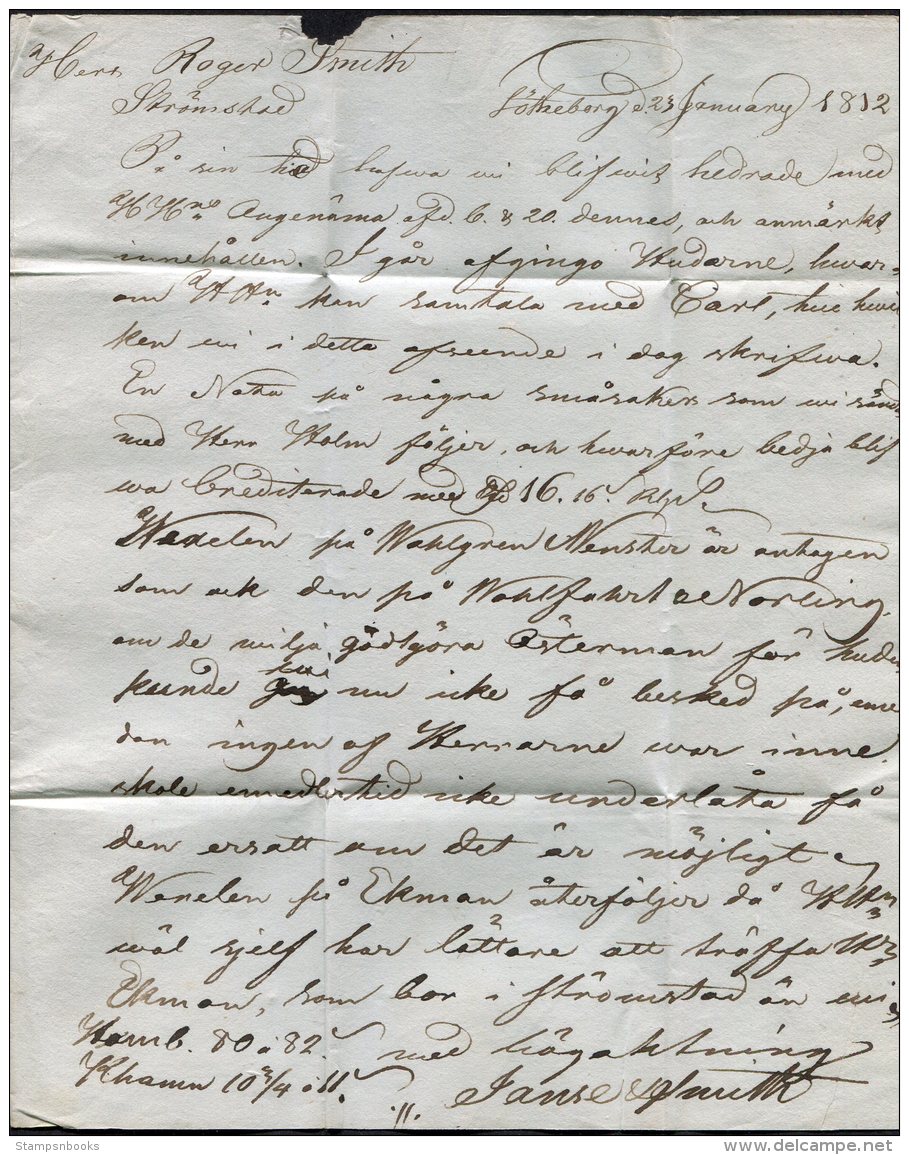 Herr Roger Smith
Strömstad Götheborg d. 23 January 1812
På sin tid hafwa wi blifwit hedrade med
HHrs Angenäma af d. 6. & 20. dennes, och anmärkt
innehållen. I går afgingo Hudarne, hwar-
om HHrn kan samtala med Carl, till hwil
ken wi i detta afseende i dag skrifwa.
En Nota på några småsaker som wi sändt
med Herr Holm följer, och hwarföre bedja blif
wa Crediterade med 16. 16.
Wexelen på Wahlgren är antagen
som ock den på Wohlfahrt & Norling.
om de wilja gödtgöra Österman för huden
kunde wi nu icke få besked på, eme
dan ingen af Herrarne war inne.
skole emedlertid icke underlåta få
den ersatt om det är möjligt
Wexelen på Ekman återföljer då HHrn
wäl sjelf har lättare att träffa Hr
Ekman, som bor i Strömstad än wi
Hamb. 80 a 82. med högaktning
Khamn 10 3/4 a 11. Janse & Smith
Stampsnbooks
www.delcampe.net